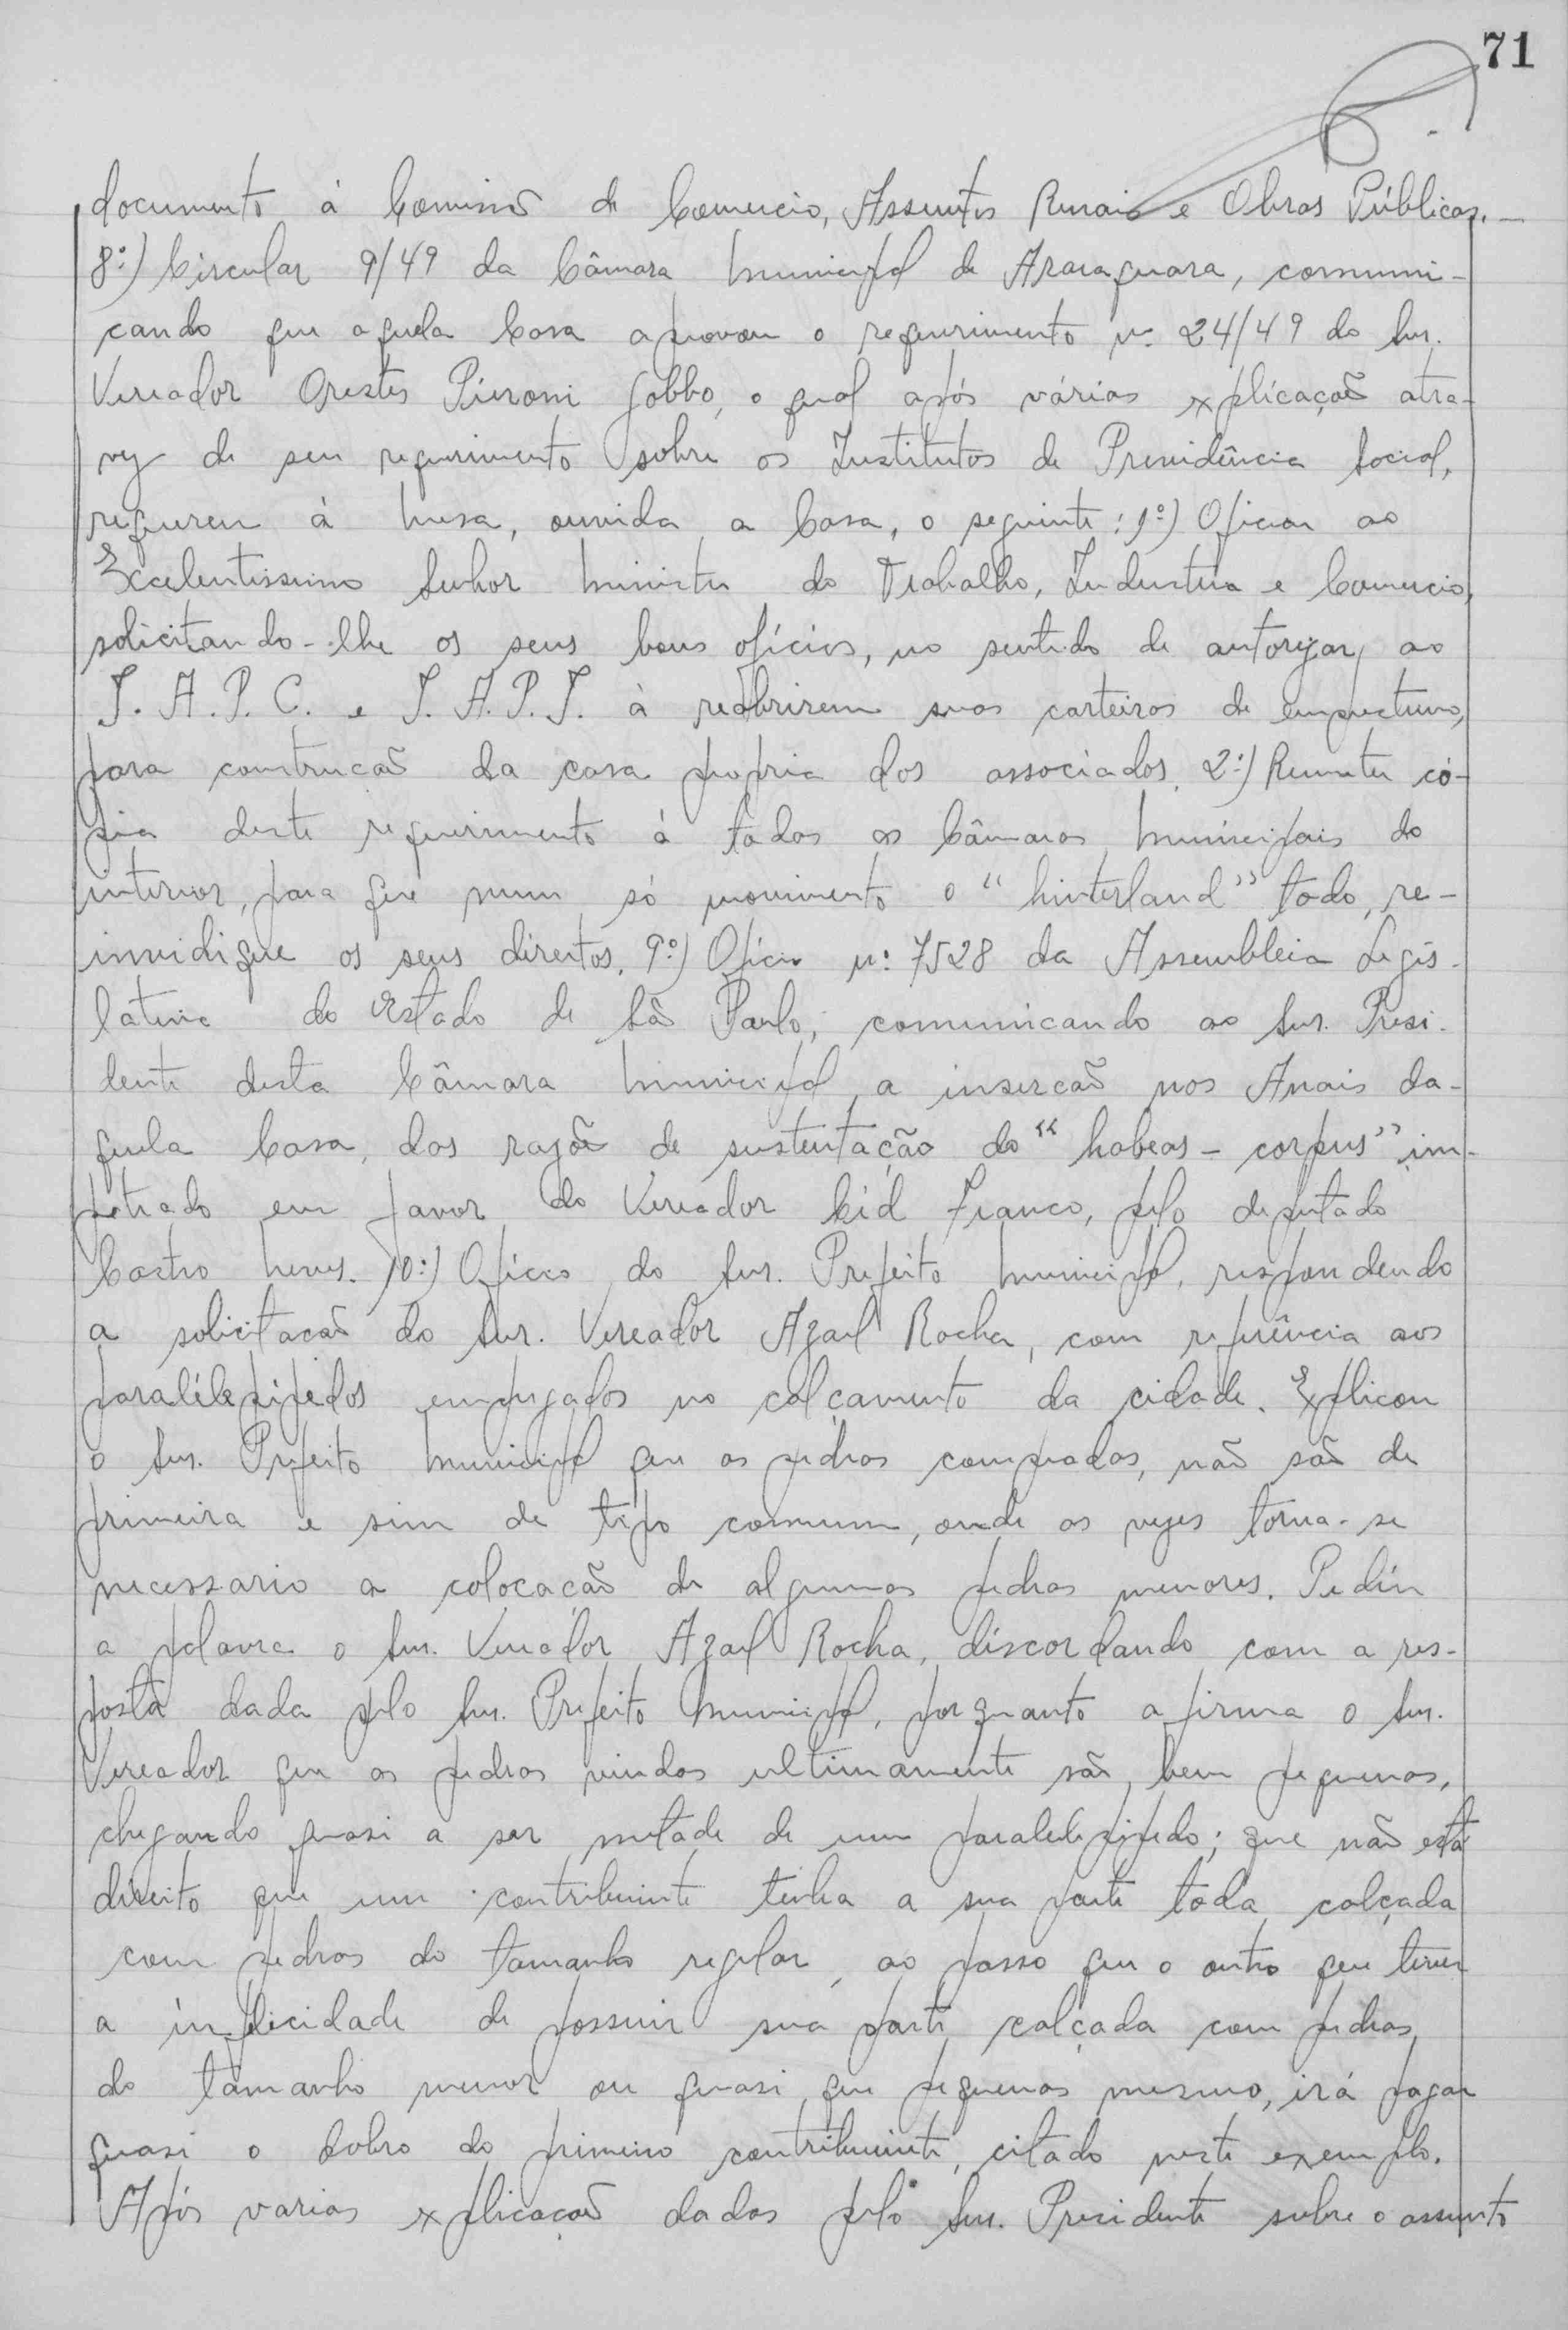 71
documento á Comissão de Comercio, Assuntos Rurais e Obras Públicas.-
8º) Circular 9/49 da Câmara Municipal de Araraquara, comuni-
cando que aquela Casa aprovou o requerimento nº 24/49 do Snr.
Vereador Orestes Pieroni Gobbo, o qual após várias explicações atra-
vez de seu requerimento sobre os Institutos de Previdência Social,
requereu á Mesa, ouvida a Casa, o seguinte: 1º) Oficiar ao
Excelentissimo Senhor Ministro do Trabalho, Industria e Comercio,
solicitando-lhe os seus bons ofícios, no sentido de autorizar, ao
I. A. P. C. e I. A. P. I. à reabrirem suas carteiras de emprestimo,
para construcão da casa propria dos associados. 2º) Remeter có-
pia deste requerimento á todas as Câmaras Municipais do
interior, para que num só movimento o "hinterland" todo, re-
invidique os seus direitos. 9º) Oficio nº 7528 da Assembleia Legis-
lativa do Estado de São Paulo, comunicando ao Snr. Presi-
dente desta Câmara Municipal a insercão nos Anais da-
quela Casa, das razões de sustentação do "habeas-corpus" im-
petrado em favor do Vereador Cid Franco, pelo deputado
Castro Neves. 10º) Ofício do Snr. Prefeito Municipal, respondendo
a solicitacão do Snr. Vereador Azael Rocha, com referência aos
paralélepípedos empregados no calçamento da cidade. Explicou
o Snr. Prefeito Municipal que as pedras compradas, não são de
primeira e sim de tipo comum, onde as vezes torna-se
necessario a colocacão de algumas pedras menores. Pediu
a palavra o Snr. Vereador Azael Rocha, discordando com a res-
posta dada pelo Snr. Prefeito Municipal, porquanto afirma o Snr.
Vereador que as pedras vindas ultimamente são bem pequenas,
chegando quasi a ser metade de um paralelepipedo; que não está
direito que um contribuinte tenha a sua parte toda calçada
com pedras do tamanho regular, ao passo que o outro que tever
a infelicidade de possuir sua parte calçada com pedras
do tamanho menor ou quasi que pequenas mesmo, irá pagar
quasi o dobro do primeiro contribuinte, citado neste exemplo.
Após varias explicações dadas pelo Snr. Presidente sobre o assunto